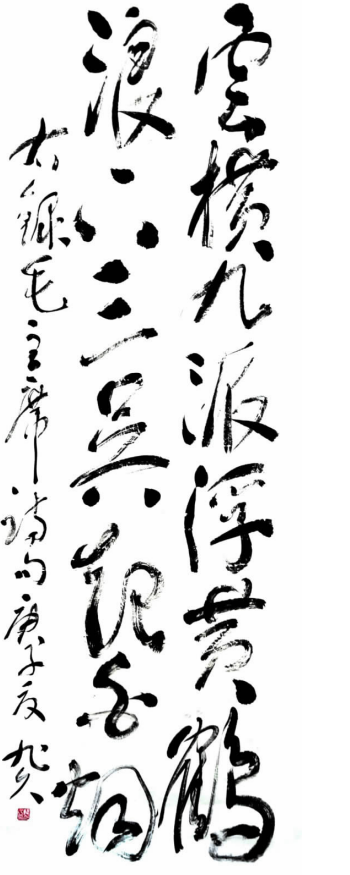 雲橫九派浮黃鶴
浪下三吳起白烟
右錄毛主席詩句庚子夏